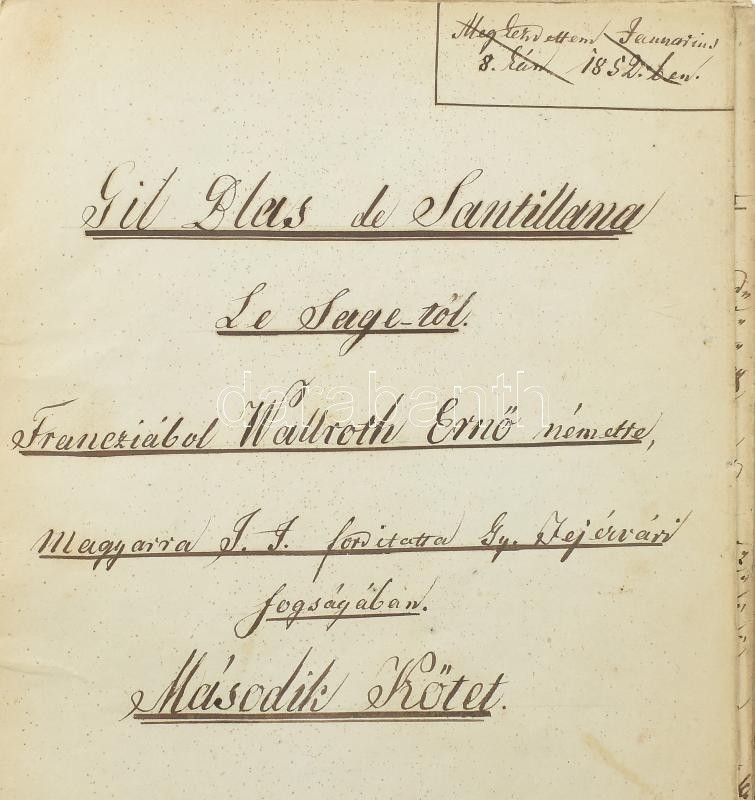 Megkezdettem Januarius
8. kán 1852.ben.
Gil Blas de Santillana
Le Sage-tól.
Francziából Wallroth Ernő németre,
magyarra J. J. forditotta Gy. Fejérvári
fogságában.
Második Kötet.
darabanth